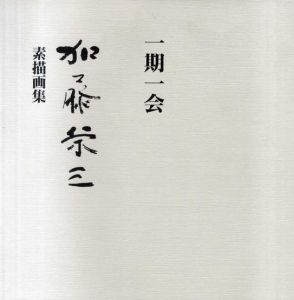 一期一会
加藤栄三
素描画集